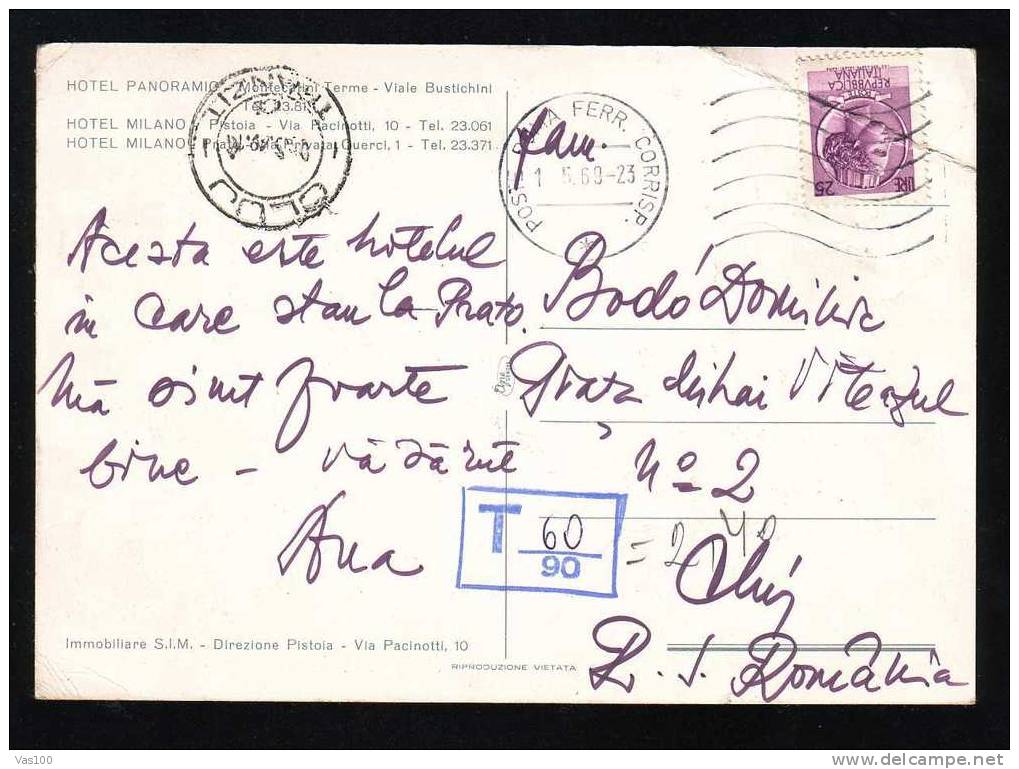 HOTEL PANORAMIC - Montecatini Terme - Viale Bustichini
Tel. 23.81
HOTEL MILANO - Pistoia - Via Pacinotti, 10 - Tel. 23.061
HOTEL MILANO - Prato - Via Privata Querci, 1 - Tel. 23.371
CLUJ
FERR. CORRISP.
1 5.69-23
fam.
REPVBBLICA
ITALIANA
POSTE
LIRE 25
Acesta este hotelul
in care stau la Prato.
Mă simt foarte
bine - vă sărut
Ana
Bodó Dominic
Mihai Viteazul
No 2
Cluj
R. S. România
T 60
90
= 2,40
Immobiliare S.I.M. - Direzione Pistoia - Via Pacinotti, 10
RIPRODUZIONE VIETATA
Vas100
www.delcampe.net